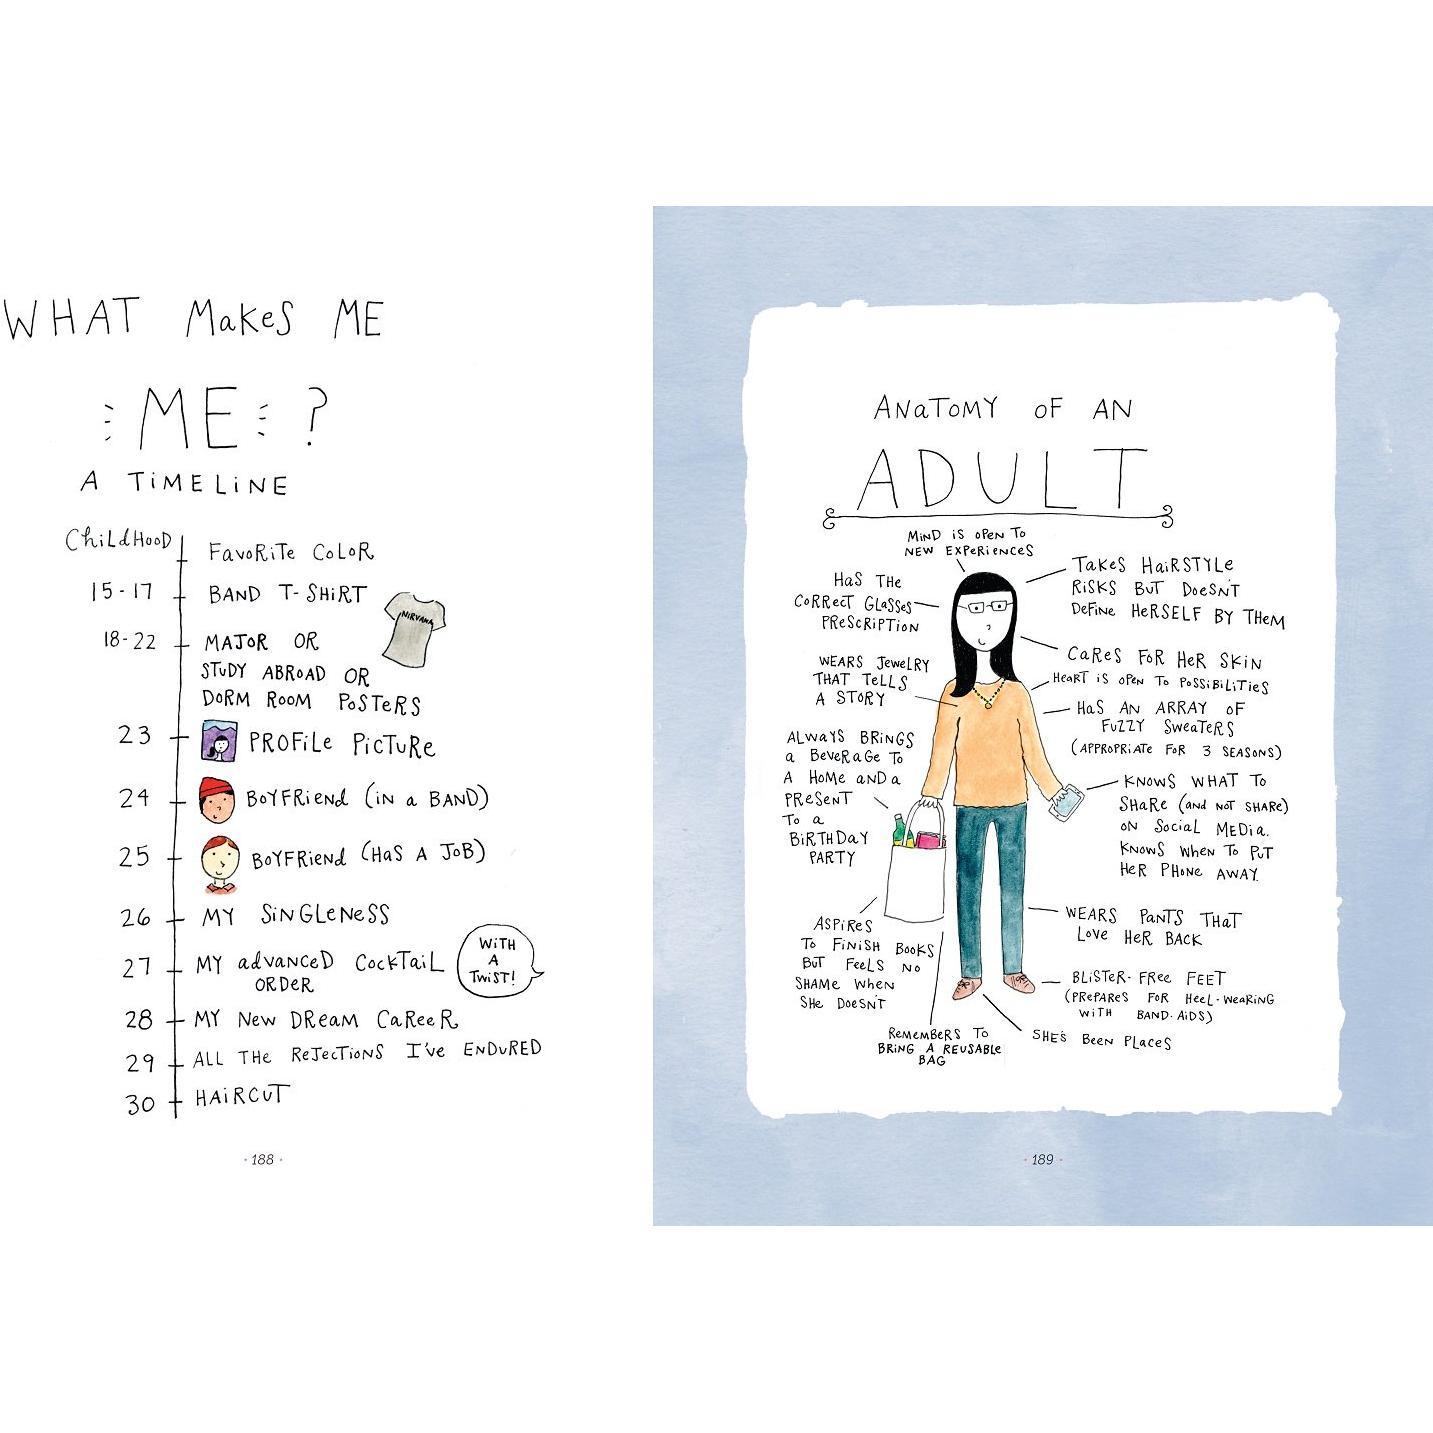 WHAT MAKES ME
ME?
A TIMELINE
CHILDHOOD
FAVORITE COLOR
15-17
BAND T-SHIRT
NIRVANA
18-22
MAJOR OR
STUDY ABROAD OR
DORM ROOM POSTERS
23
PROFILE PICTURE
24
BOYFRIEND (IN A BAND)
25
BOYFRIEND (HAS A JOB)
26
MY SINGLENESS
27
MY ADVANCED COCKTAIL
ORDER
WITH
A
TWIST!
28
MY NEW DREAM CAREER
29
ALL THE REJECTIONS I'VE ENDURED
30
HAIRCUT
· 188 ·
ANATOMY OF AN
ADULT
MIND IS OPEN TO
NEW EXPERIENCES
HAS THE
CORRECT GLASSES
PRESCRIPTION
WEARS JEWELRY
THAT TELLS
A STORY
ALWAYS BRINGS
A BEVERAGE TO
A HOME AND A
PRESENT
TO A
BIRTHDAY
PARTY
ASPIRES
TO FINISH BOOKS
BUT FEELS NO
SHAME WHEN
SHE DOESN'T
REMEMBERS TO
BRING A REUSABLE
BAG
TAKES HAIRSTYLE
RISKS BUT DOESN'T
DEFINE HERSELF BY THEM
CARES FOR HER SKIN
HEART IS OPEN TO POSSIBILITIES
HAS AN ARRAY OF
FUZZY SWEATERS
(APPROPRIATE FOR 3 SEASONS)
KNOWS WHAT TO
SHARE (AND NOT SHARE)
ON SOCIAL MEDIA.
KNOWS WHEN TO PUT
HER PHONE AWAY.
WEARS PANTS THAT
LOVE HER BACK
BLISTER-FREE FEET
(PREPARES FOR HEEL-WEARING
WITH BAND-AIDS)
SHE'S BEEN PLACES
· 189 ·